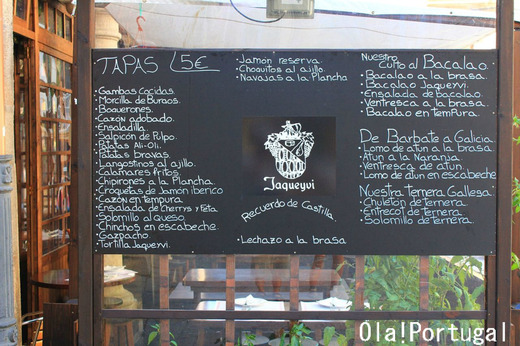 TAPAS 5€
• Gambas Cocidas.
• Morcilla de Burgos.
• Boquerones.
• Cazón adobado.
• Ensaladilla.
• Salpicón de Pulpo.
• Patatas Ali-Oli.
• Patatas bravas.
• Langostinos al ajillo.
• Calamares fritos.
• Chipirones a la Plancha
• Croquetas de Jamón ibérico
• Cazón en tempura.
• Ensalada de Cherrys y Feta
• Solomillo al queso.
• Chinchos en escabeche.
• Gazpacho.
• Tortilla Jaquevi.
• Jamon reserva.
• Choquitos al ajillo.
• Navajas a la Plancha
Jaqueyvi
Recuerdo de Castilla
• Lechazo a la brasa
Nuestro
Culto al Bacalao.
• Bacalao a la brasa.
• Bacalao Jaquevi.
• Ensalada de bacalao.
• Ventresca a la brasa.
• Bacalao en Tempura.
De Barbate a Galicia
• Lomo de atun a la brasa
• Atun a la Naranja.
• Ventresca de atun.
• Lomo de atun en escabeche
Nuestra ternera Gallega.
• Chuletón de ternera.
• Entrecot de ternera.
• Solomillo de ternera.
Ola!Portugal